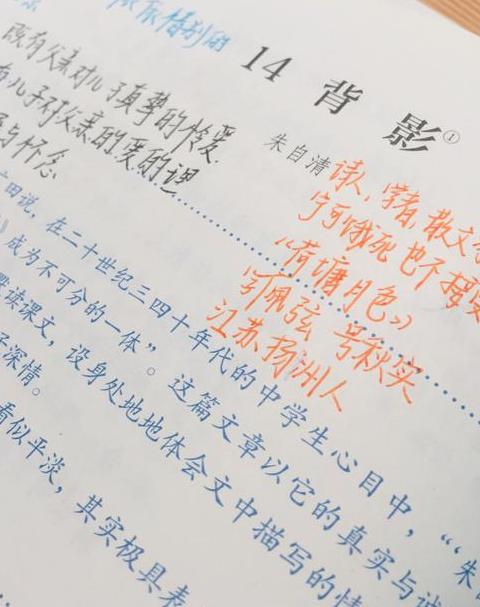 依依惜别的
14 背 影①
朱自清
既有父亲对儿子真挚的怜爱
有儿子对父亲的爱的理
与怀念
诗人,学者,散文
宁可饿死也不接受
《荷塘月色》
字佩弦 号秋实
江苏扬洲人
说,在二十世纪三四十年代的中学生心目中,“‘朱
成为不可分的一体”。这篇文章以它的真实与
读课文,设身处地地体会文中描写的情
深情。
看似平淡,其实极具表